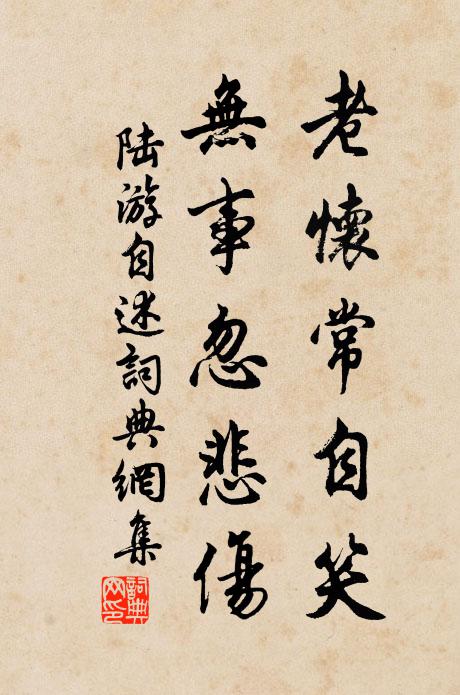 老懷常自笑
無事忽悲傷
陆游自述詞典網集
詞典
网印